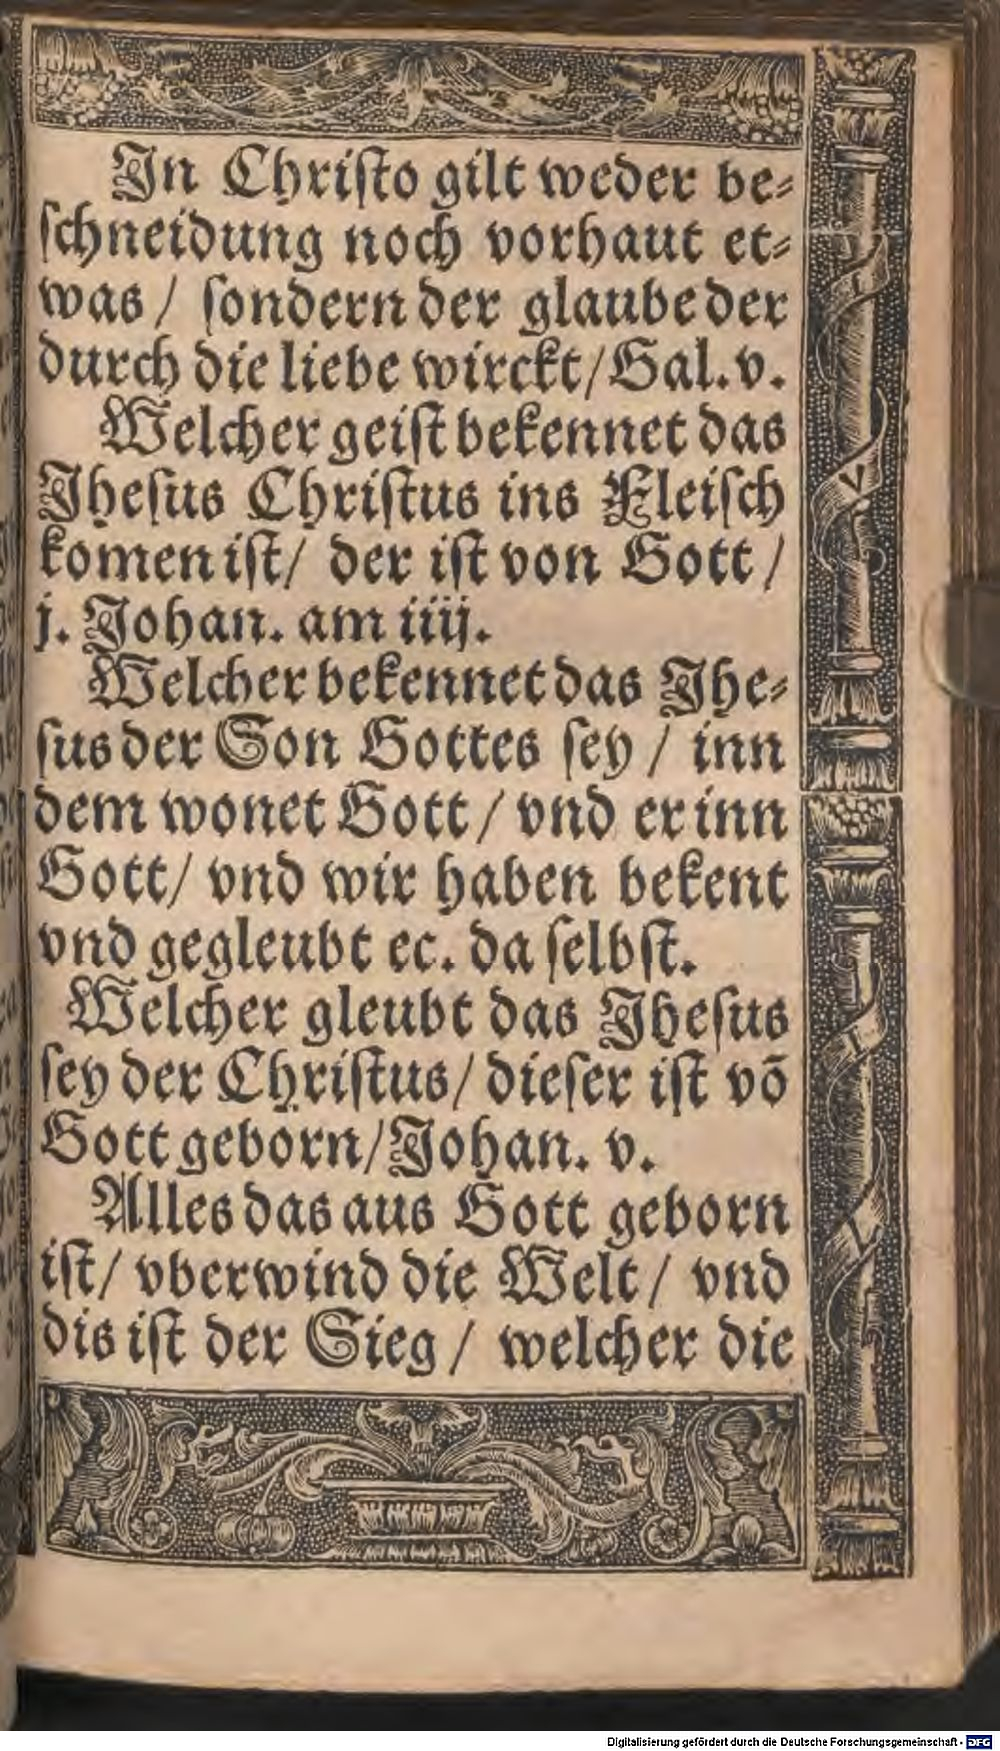 In Chriſto gilt weder be⸗
ſchneidung noch vorhaut et⸗
was / ſondern der glaube der
durch die liebe wirckt / Gal. v.
Welcher geiſt bekennet das
Jheſus Chriſtus ins Fleiſch
komen iſt / der iſt von Gott /
j. Johan. am iiij.
Welcher bekennet das Jhe⸗
ſus der Son Gottes ſey / inn
dem wonet Gott / vnd er inn
Gott / vnd wir haben bekent
vnd gegleubt ec. da ſelbſt.
Welcher gleubt das Jheſus
ſey der Chriſtus / dieſer iſt võ
Gott geborn / Johan. v.
Alles das aus Gott geborn
iſt / vberwind die Welt / vnd
dis iſt der Sieg / welcher die
Digitalisierung gefördert durch die Deutsche Forschungsgemeinschaft - DFG